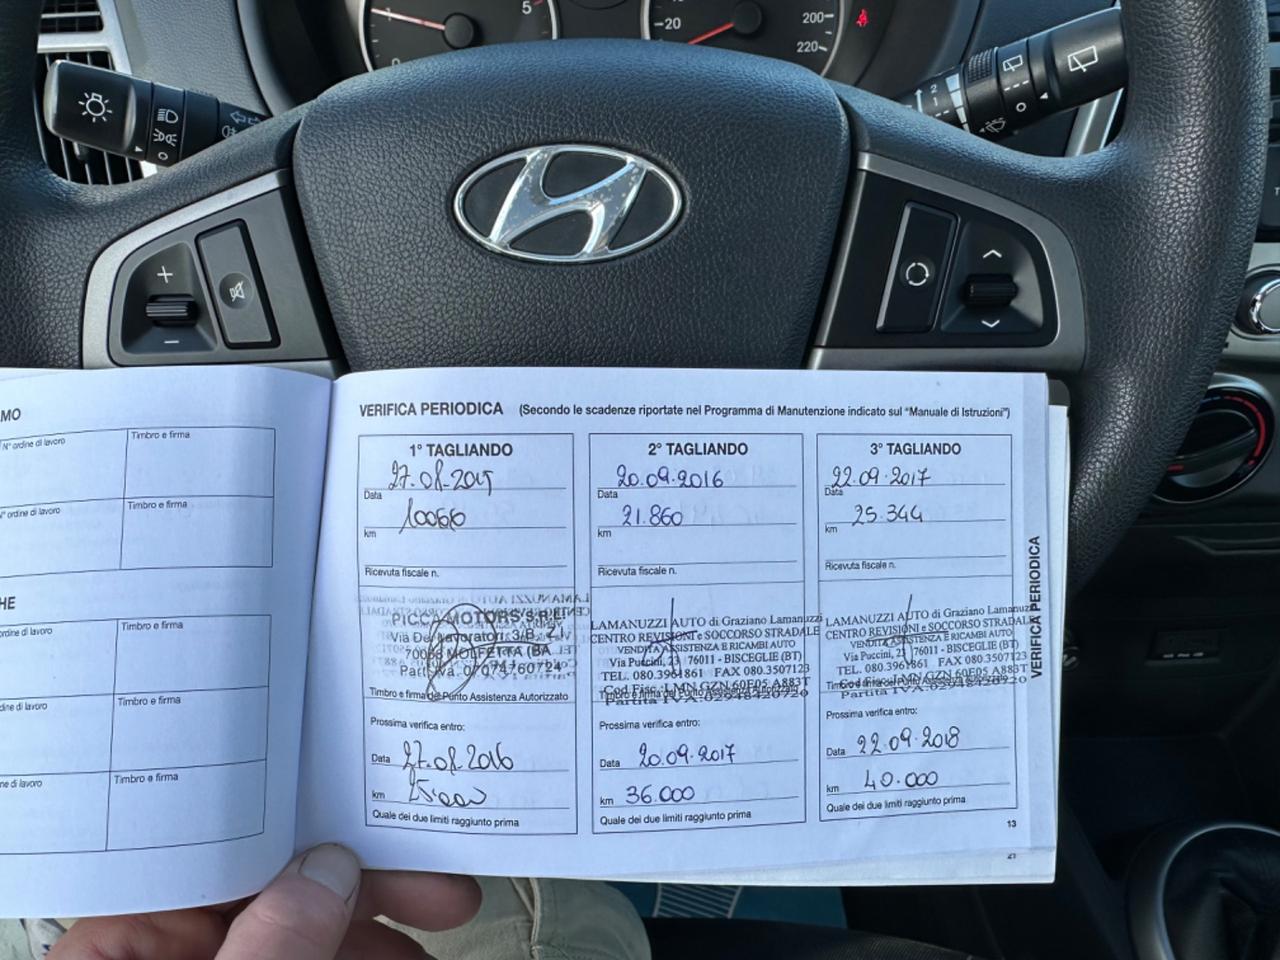 1
5
0
20
200
220
2
1
AMO
N° ordine di lavoro
Timbro e firma
N° ordine di lavoro
Timbro e firma
CHE
ordine di lavoro
Timbro e firma
ordine di lavoro
Timbro e firma
ne di lavoro
Timbro e firma
VERIFICA PERIODICA (Secondo le scadenze riportate nel Programma di Manutenzione indicato sul "Manuale di Istruzioni")
1° TAGLIANDO
27.08.2015
Data
10066
km
Ricevuta fiscale n.
PICCA MOTORS S.R.L.
Via Dei Lavoratori, 3/B, Z.I.
70056 MOLFETTA (BA
Part. Iva. 07674760724
Timbro e firma del Punto Assistenza Autorizzato
Prossima verifica entro:
Data 27.08.2016
km 25.000
Quale dei due limiti raggiunto prima
2° TAGLIANDO
20.09.2016
Data
21.860
km
Ricevuta fiscale n.
LAMANUZZI AUTO di Graziano Lamanuzzi
CENTRO REVISIONI e SOCCORSO STRADALE
VENDITA ASSISTENZA E RICAMBI AUTO
Via Puccini, 23 76011 - BISCEGLIE (BT)
TEL. 080.3961861 FAX 080.3507123
Cod. Fisc.: LMN GZN 60E05 A883T
Timbro e firma del Punto Assistenza Autorizzato
Partita IVA: 02948420720
Prossima verifica entro:
Data 20.09.2017
km 36.000
Quale dei due limiti raggiunto prima
3° TAGLIANDO
22.09.2017
Data
25.344
km
Ricevuta fiscale n.
LAMANUZZI AUTO di Graziano Lamanuzzi
CENTRO REVISIONI e SOCCORSO STRADALE
VENDITA ASSISTENZA E RICAMBI AUTO
Via Puccini, 23 76011 - BISCEGLIE (BT)
TEL. 080.3961861 FAX 080.3507123
Cod. Fisc.: LMN GZN 60E05 A883T
Partita IVA: 02948420720
Prossima verifica entro:
Data 22.09.2018
km 40.000
Quale dei due limiti raggiunto prima
VERIFICA PERIODICA
13
21